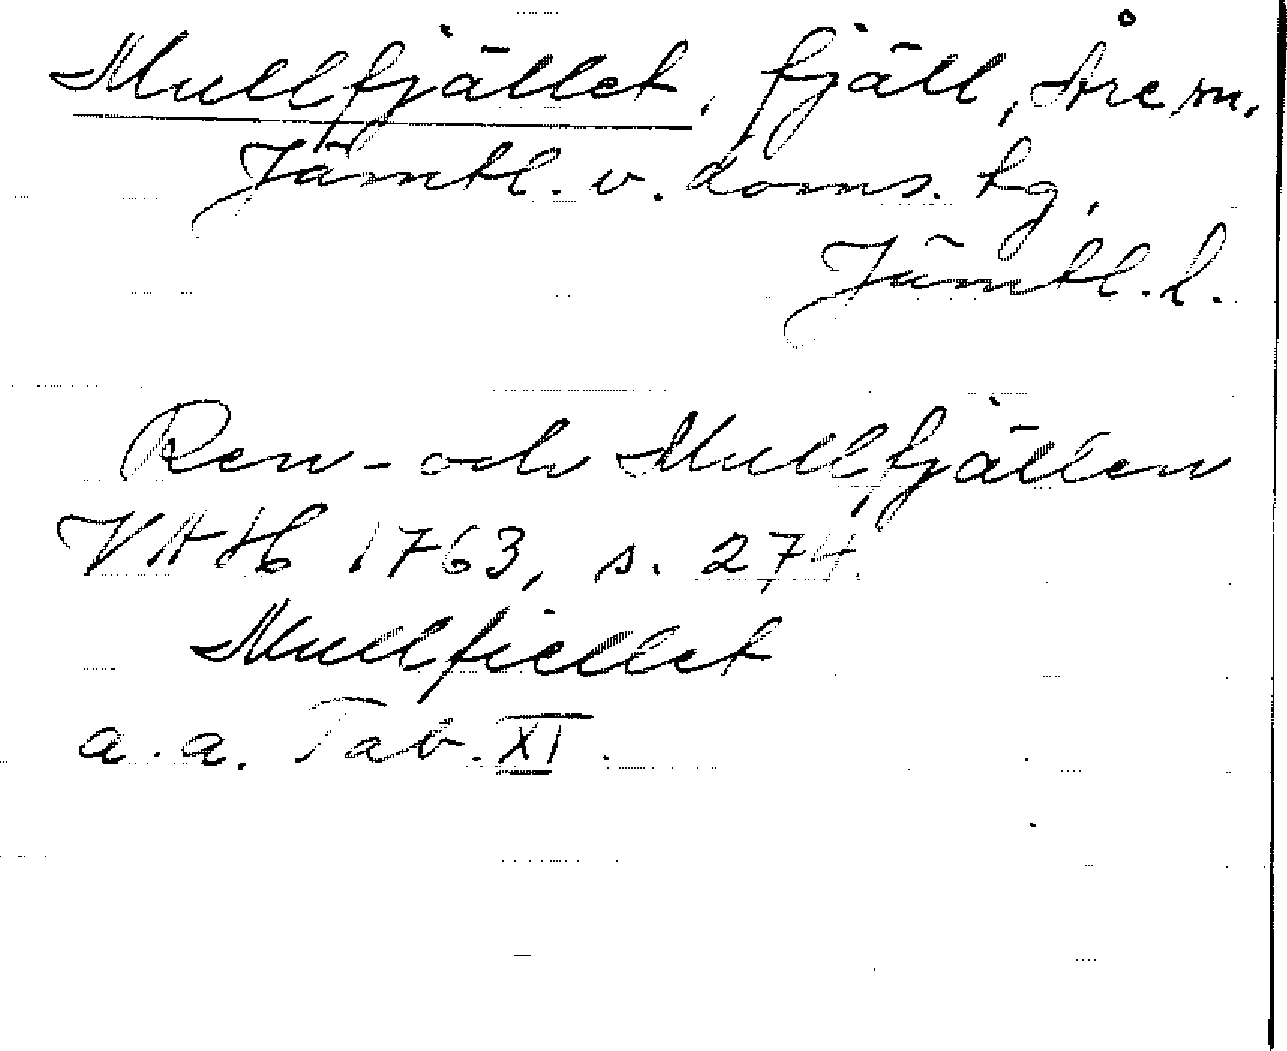 Mullfjället, fjäll, Åre sn.
Jämtl. v. doms. hg,
Jämtl. l.
Ren- och Mullfjällen
VAH 1763, s. 274.
Mullfiellet
a. a. Tab. XI.